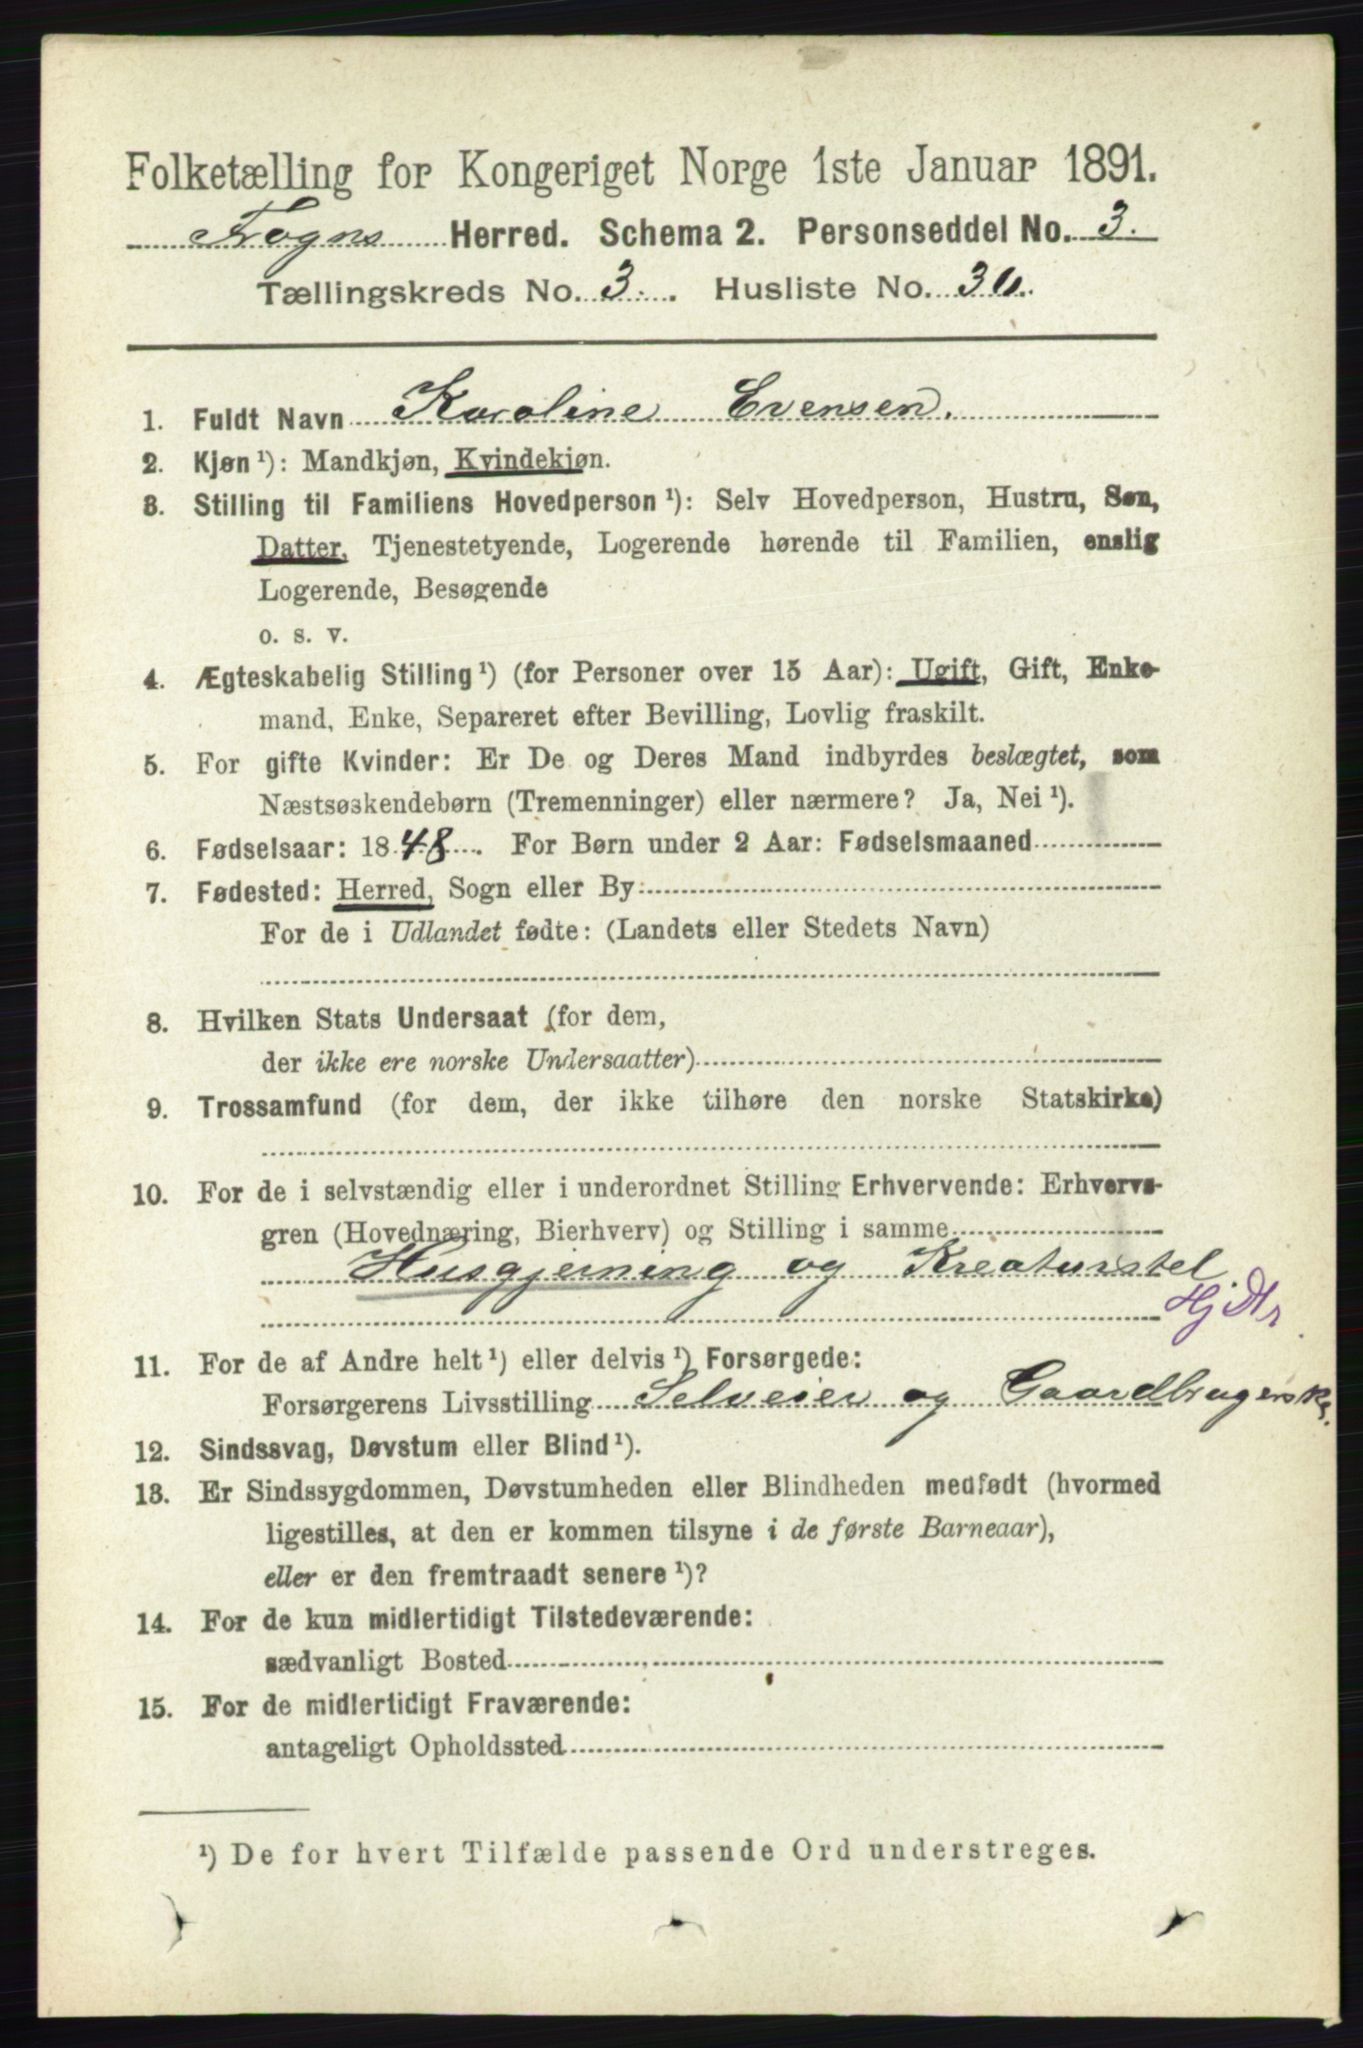 Folketælling for Kongeriget Norge 1ste Januar 1891.
Frogns Herred. Schema 2. Personseddel No. 3.
Tællingskreds No. 3. Husliste No.
1. Fuldt Navn Karoline Evensen.
2. Kjøn ¹): Mandkjøn, Kvindekjøn.
3. Stilling til Familiens Hovedperson ¹): Selv Hovedperson, Hustru, Søn,
Datter, Tjenestetyende, Logerende hørende til Familien, enslig
Logerende, Besøgende
o. s. v.
4. Ægteskabelig Stilling ¹) (for Personer over 15 Aar): Ugift, Gift, Enke-
mand, Enke, Separeret efter Bevilling, Lovlig fraskilt.
5. For gifte Kvinder: Er De og Deres Mand indbyrdes beslægtet, som
Næstsøskendebørn (Tremenninger) eller nærmere? Ja, Nei ¹).
6. Fødselsaar: 1848. For Børn under 2 Aar: Fødselsmaaned
7. Fødested: Herred, Sogn eller By
For de i Udlandet fødte: (Landets eller Stedets Navn)
8. Hvilken Stats Undersaat (for dem,
der ikke ere norske Undersaatter)
9. Trossamfund (for dem, der ikke tilhøre den norske Statskirke)
10. For de i selvstændig eller i underordnet Stilling Erhvervende: Erhvervs-
gren (Hovednæring, Bierhverv) og Stilling i samme
Husgjerning og Kreaturstel
Hj. Dtr
11. For de af Andre helt ¹) eller delvis ¹) Forsørgede:
Forsørgerens Livsstilling Selveier og Gaardbrugerske.
12. Sindssvag, Døvstum eller Blind ¹).
13. Er Sindssygdommen, Døvstumheden eller Blindheden medfødt (hvormed
ligestilles, at den er kommen tilsyne i de første Barneaar),
eller er den fremtraadt senere ¹)?
14. For de kun midlertidigt Tilstedeværende:
sædvanligt Bosted
15. For de midlertidigt Fraværende:
antageligt Opholdssted
¹) De for hvert Tilfælde passende Ord understreges.